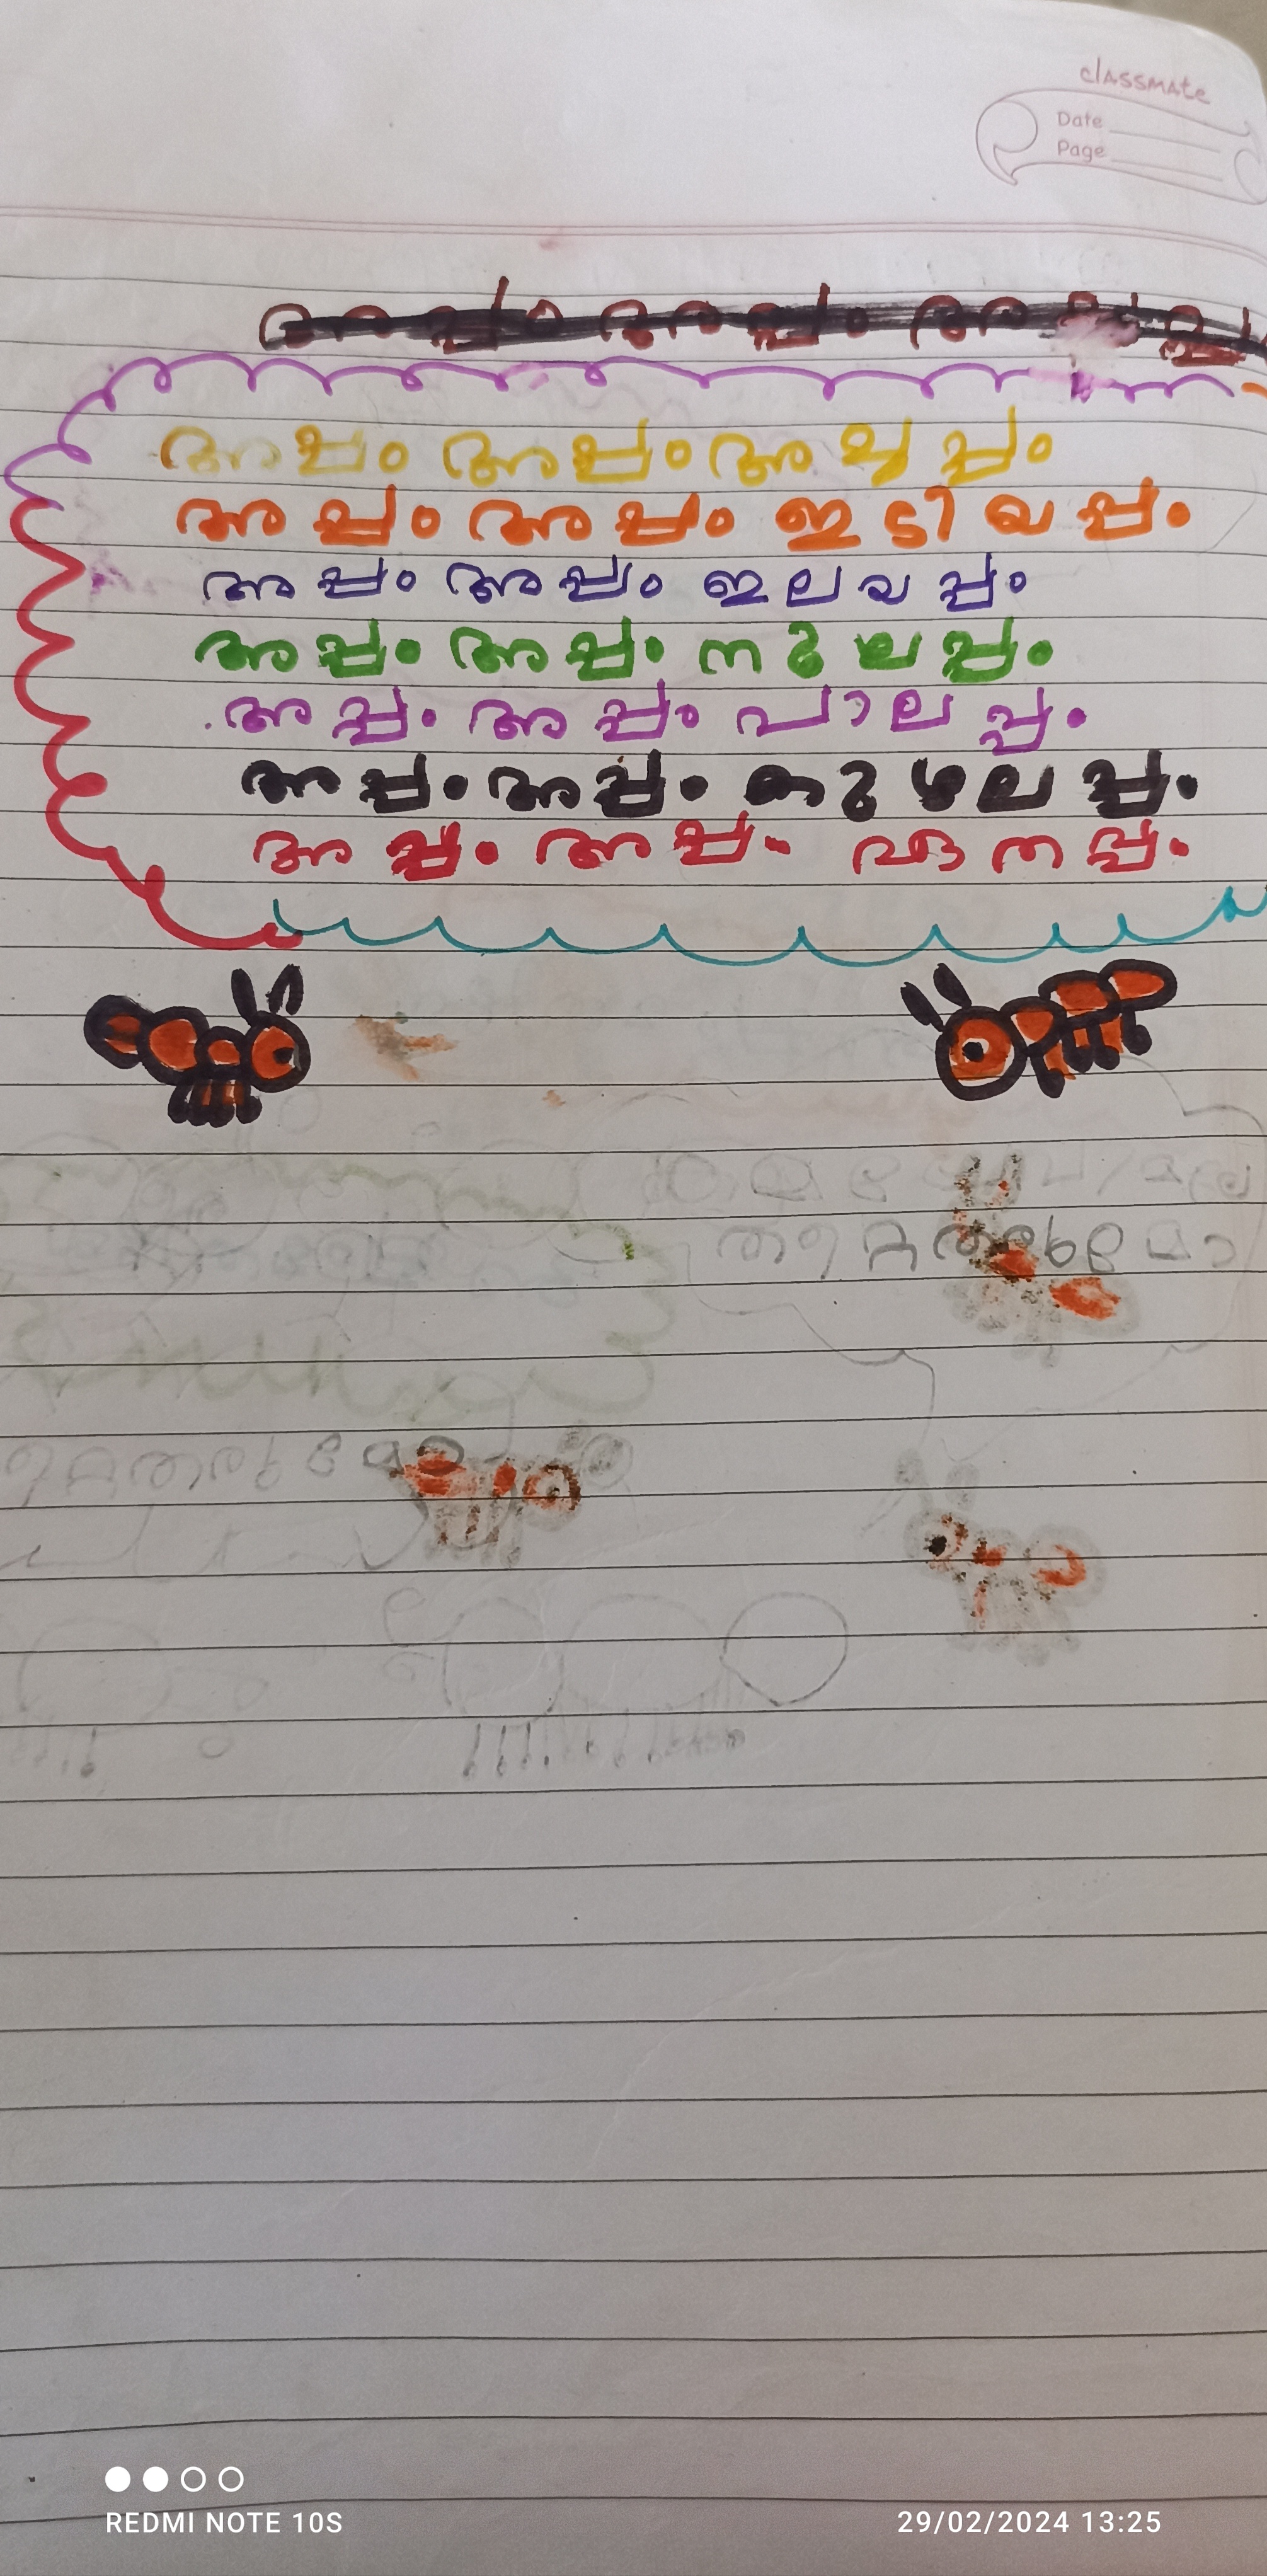 classmate
Date
Page
അപ്പം അപ്പം അച്ചപ്പം
അപ്പം അപ്പം ഇടിയപ്പം
അപ്പം അപ്പം ഇലയപ്പം
അപ്പം അപ്പം നുലപ്പം
അപ്പം അപ്പം പാലപ്പം
അപ്പം അപ്പം കുഴലപ്പം
അപ്പം അപ്പം ഏതപ്പം
REDMI NOTE 10S
29/02/2024 13:25